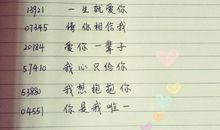 13921 一生就爱你
07345 请你相信我
20184 爱你一辈子
57410 我心只给你
53880 我想抱抱你
04551 你是我唯一